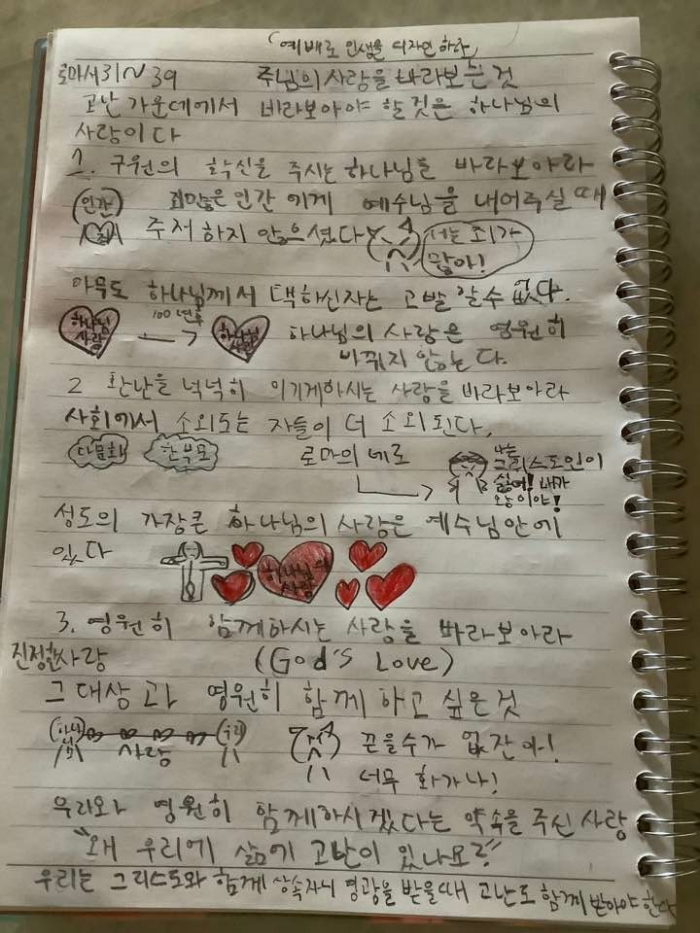 (예배로 인생을 디자인하라)
로마서 31~39 주님의 사랑을 바라보는것
고난 가운데에서 바라보아야 할것은 하나님의
사랑이다
1. 구원의 확신을 주시는 하나님을 바라보아라
인간 죄많은 인간에게 예수님을 내어주실때
주저하지 않으셨다 너는 죄가
많아!
아무도 하나님께서 택하신자는 고발할수 없다.
하나님 사랑 100년후 하나님 사랑 하나님의 사랑은 영원히
바뀌지 않는다.
2 환난을 넉넉히 이기게하시는 사랑을 바라보아라
사회에서 소외되는 자들이 더 소외된다.
다문화 한부모 로마의 네로 나는 그리스도인이
싫어! 내가
왕이야!
성도의 가장큰 하나님의 사랑은 예수님안에
있다 하나님의 사랑
3. 영원히 함께하시는 사랑을 바라보아라
진정한사랑 (God's Love)
그 대상과 영원히 함께 하고 싶은것
하나님 사랑 우리 끈을수가 없잖아!
너무 화가나!
우리와 영원히 함께하시겠다는 약속을 주신 사랑
"왜 우리에 삶에 고난이 있나요?"
우리는 그리스도와 함께 상속자니 영광을 받을때 고난도 함께 받아야 한다